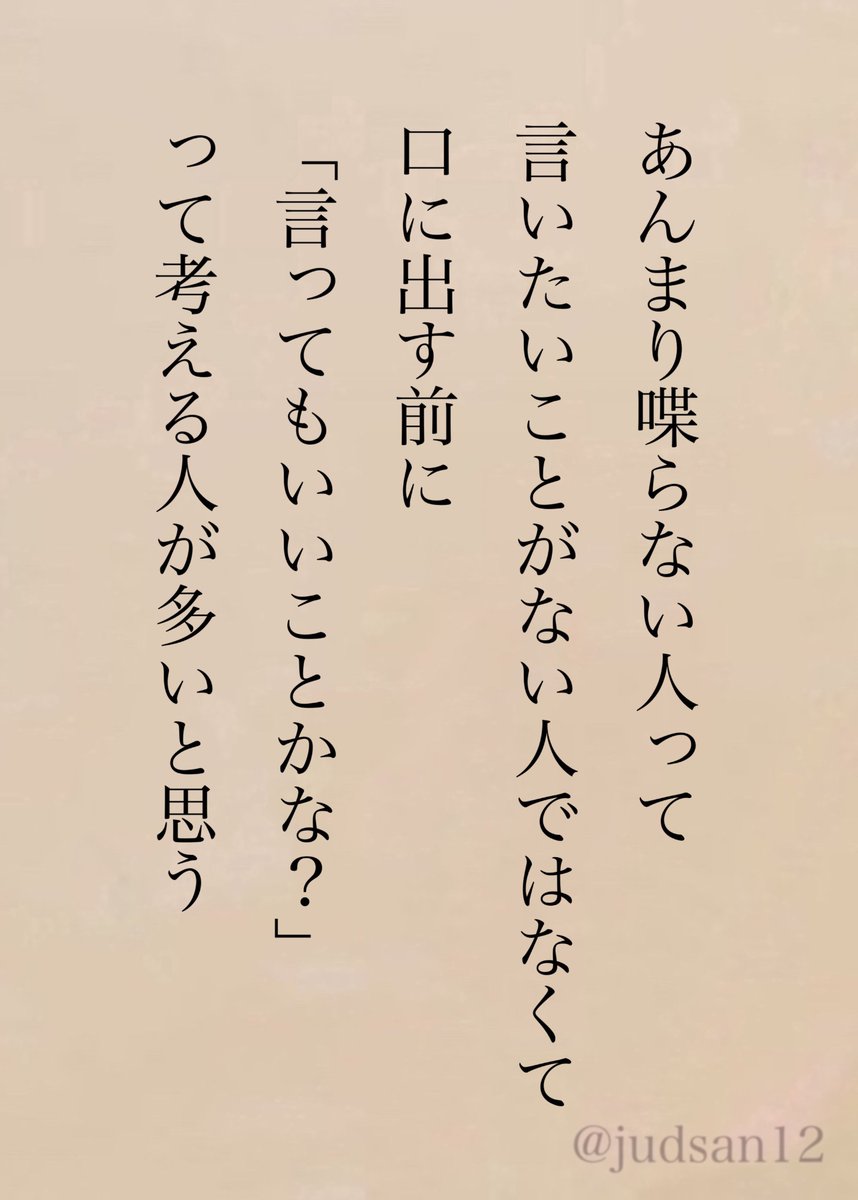 あんまり喋らない人って
言いたいことがない人ではなくて
口に出す前に
「言ってもいいことかな？」
って考える人が多いと思う
@judsan12